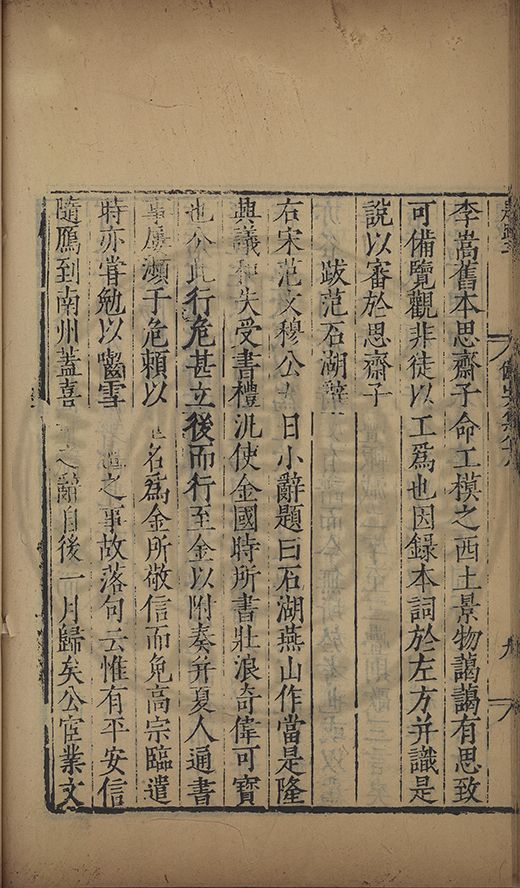 李嵩舊本思齋子命工模之西土景物藹藹有思致
可備覽觀非徒以工爲也因錄本詞於左方并識是
說以審於思齋子
跋范石湖辭
右宋范文穆公 日小辭題曰石湖燕山作當是隆
興議和失受書禮汎使金國時所書壯浪奇偉可寶
也公此行危甚立後而行至金以附奏并夏人通書
事屢瀕于危賴以 名爲金所敬信而免高宗臨遣
時亦嘗勉以嚙雪 之事故落句云惟有平安信
隨鴈到南州蓋喜 之辭自後一月歸矣公宦業文
九